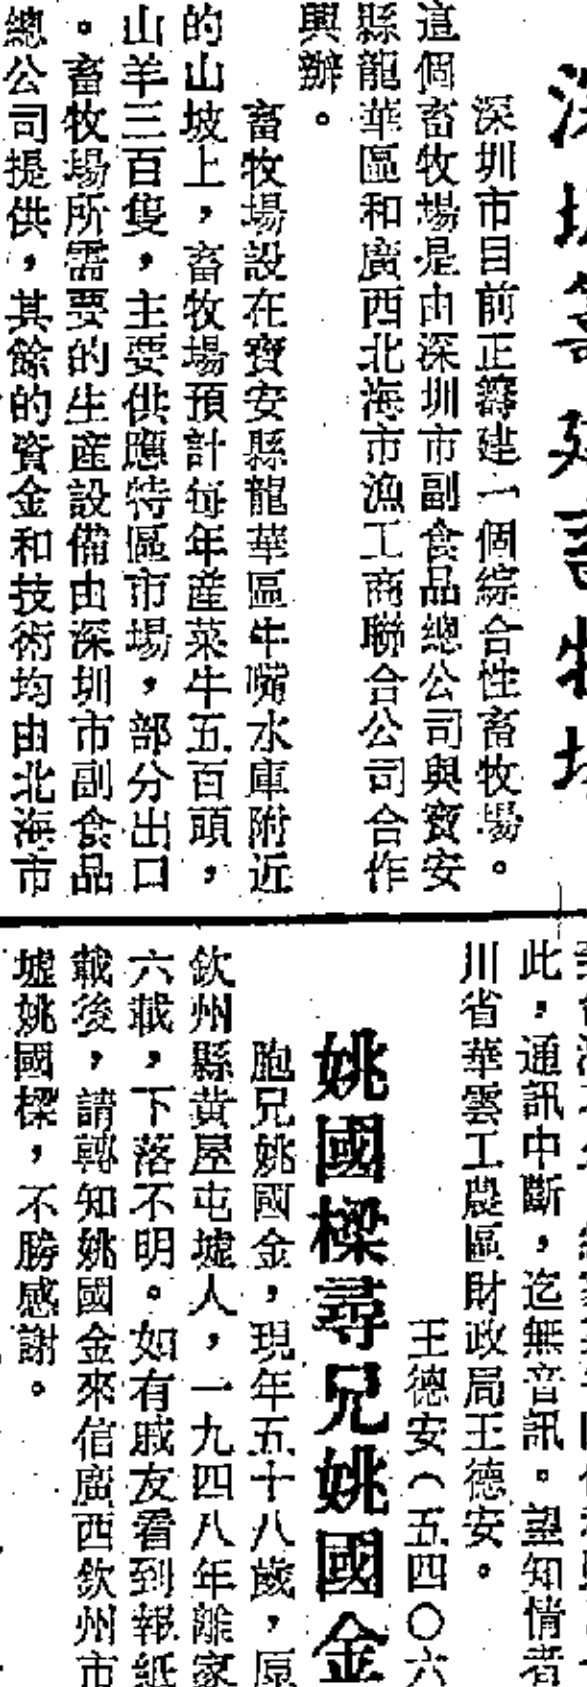 深圳籌建畜牧場
深圳市目前正籌建一個綜合性畜牧場。
這個畜牧場是由深圳市副食品總公司與寶安
縣龍華區和廣西北海市漁工商聯合公司合作
興辦。
畜牧場設在寶安縣龍華區牛嘴水庫附近
的山坡上，畜牧場預計每年產菜牛五百頭，
山羊三百隻，主要供應特區市場，部分出口
。畜牧場所需要的生産設備由深圳市副食品
總公司提供，其餘的資金和技術均由北海市
此，通訊中斷，迄無音訊。望知情者
川省華雲工農區財政局王德安。
王德安（五四〇六
姚國樑尋兄姚國金
胞兄姚國金，現年五十八歲，原
欽州縣黃屋屯墟人，一九四八年離家
六載，下落不明。如有戚友看到報紙
載後，請轉知姚國金來信廣西欽州市
墟姚國樑，不勝感謝。